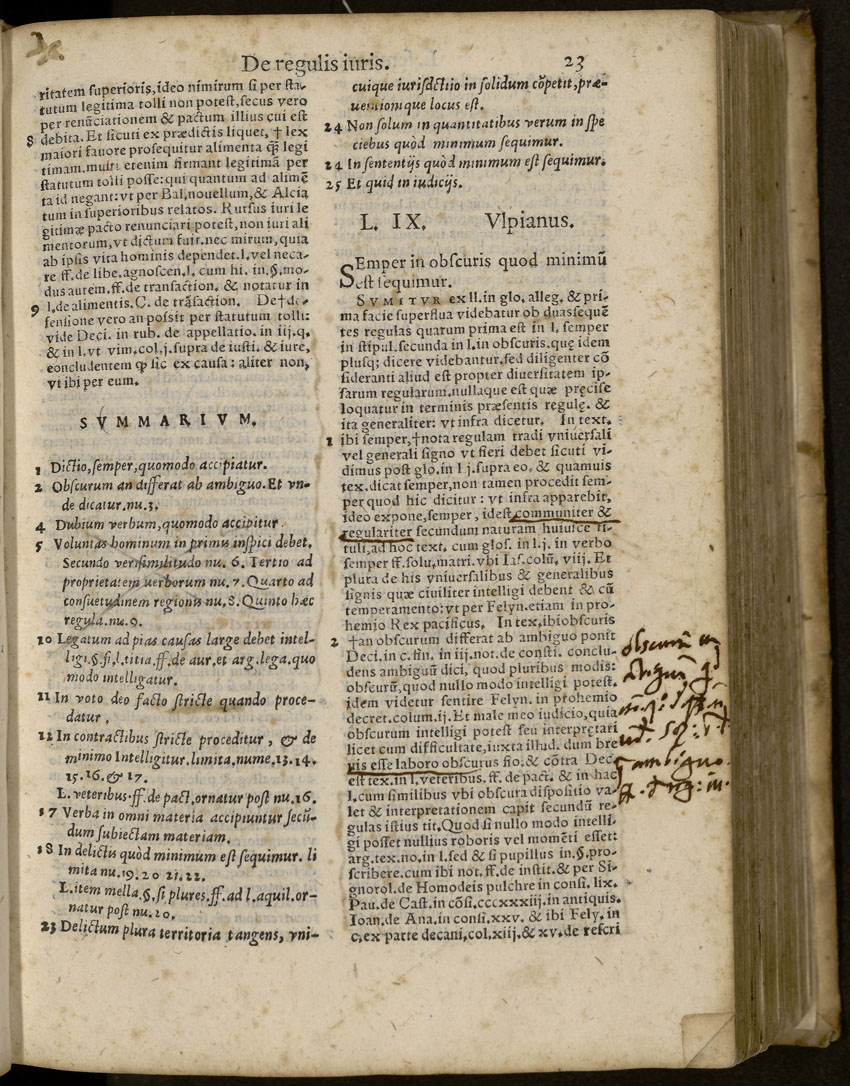 De regulis iuris. 23
ritatem superioris, ideo nimirum si per sta-
tutum legitima tolli non potest, secus vero
per renũciationem & pactum illius cui est
8 debita. Et sicuti ex prædictis liquet, † lex
maiori fauore prosequitur alimenta q̃ legi
timam. multi etenim firmant legitimã per
statutum tolli posse: qui quantum ad alimẽ
ta id negant: vt per Bal. nouellum, & Alcia
tum in superioribus relatos. Rursus iuri le
gitimæ pacto renunciari potest, non iuri ali
mentorum, vt dictum fuit. nec mirum, quia
ab ipsis vita hominis dependet. l. vel neca-
re ff. de libe. agnoscen. l. cum hi. in. §. mo-
dus autem. ff. de transaction. & notatur in
9 l. de alimentis. C. de trãsaction. De † de-
fensione vero an possit per statutum tolli:
vide Deci. in rub. de appellatio. in iij. q.
& in l. vt vim. col. j. supra de iusti. & iure,
concludentem ꝙ sic ex causa: aliter non,
vt ibi per eum.
SVMMARIVM.
1 Dictio, semper, quomodo accipiatur.
2 Obscurum an differat ab ambiguo. Et vn-
de dicatur. nu. 3.
4 Dubium verbum, quomodo accipitur.
5 Voluntas hominum in primis inspici debet.
Secundo verisimilitudo nu. 6. Tertio ad
proprietatem verborum nu. 7. Quarto ad
consuetudinem regionis nu. 8. Quinto hæc
regula. nu. 9.
10 Legatum ad pias causas large debet intel-
ligi. §. si, l. titia. ff. de aur. et arg. lega. quo
modo intelligatur.
11 In voto deo facto stricte quando proce-
datur,
12 In contractibus stricte proceditur, & de
minimo Intelligitur. limita. nume. 13. 14.
15. 16. & 17.
L. veteribus. ff. de pact. ornatur post nu. 16.
17 Verba in omni materia accipiuntur secũ-
dum subiectam materiam.
18 In delictis quòd minimum est sequimur. li
mita nu. 19. 20 21. 22.
L. item mella. §. si plures. ff. ad l. aquil. or-
natur post nu. 20.
23 Delictum plura territoria tangens, vni-
cuique iurisdictio in solidum cõpetit, præ-
uentionique locus est.
24 Non solum in quantitatibus verum in spe
ciebus quòd minimum sequimur.
24 In sententijs quòd minimum est sequimur.
25 Et quid in iudicijs.
L. IX. Vlpianus.
SEmper in obscuris quod minimũ
est sequimur.
SVMITVR ex ll. in glo. alleg. & pri-
ma facie superflua videbatur ob duas sequẽ
tes regulas quarum prima est in l. semper
in stipul. secunda in l. in obscuris. quę idem
plusq; dicere videbantur. sed diligenter cõ
sideranti aliud est propter diuersitatem ip-
sarum regularum. nullaque est quæ pręcise
loquatur in terminis præsentis regulę. &
ita generaliter: vt infra dicetur. In text.
1 ibi semper, † nota regulam tradi vniuersali
vel generali signo vt fieri debet sicuti vi-
dimus post glo. in l j. supra eo. & quamuis
tex. dicat semper, non tamen procedit sem-
per quod hic dicitur: vt infra apparebit,
ideo expone, semper, idest, communiter &
regulariter secundum naturam huiusce ti-
tuli, ad hoc text. cum glos. in l. j. in verbo
semper ff. solu. matri. vbi Ias. colũ. viij. Et
plura de his vniuersalibus & generalibus
signis quæ ciuiliter intelligi debent & cũ
temperamento: vt per Felyn. etiam in pro-
hemio Rex pacificus. In tex. ibi obscuris
2 † an obscurum differat ab ambiguo ponit
Deci. in c. fin. in iij. not. de consti. conclu-
dens ambiguũ dici, quod pluribus modis:
obscurũ, quod nullo modo intelligi potest.
idem videtur sentire Felyn. in prohemio
decret. colum. ij. Et male meo iudicio, quia
obscurum intelligi potest seu interpretari
licet cum difficultate, iuxta illud. dum bre
uis esse laboro obscurus fio: & cõtra Dec.
est tex. in l. veteribus. ff. de pact. & in hac
l. cum similibus vbi obscura dispositio va-
let & interpretationem capit secundũ re-
gulas istius tit. Quod si nullo modo intelli-
gi posset nullius roboris vel momẽti esset:
arg. tex. no. in l. sed & si pupillus in. §. pro-
scribere. cum ibi not. ff. de instit. & per Si-
gnorol. de Homodeis pulchre in consi. lix.
Pau. de Cast. in cõsi. cccxxxiij. in antiquis.
Ioan. de Ana. in consi. xxv. & ibi Fely. in
c. ex parte decani, col. xiij. & xv. de rescri
ambiguo